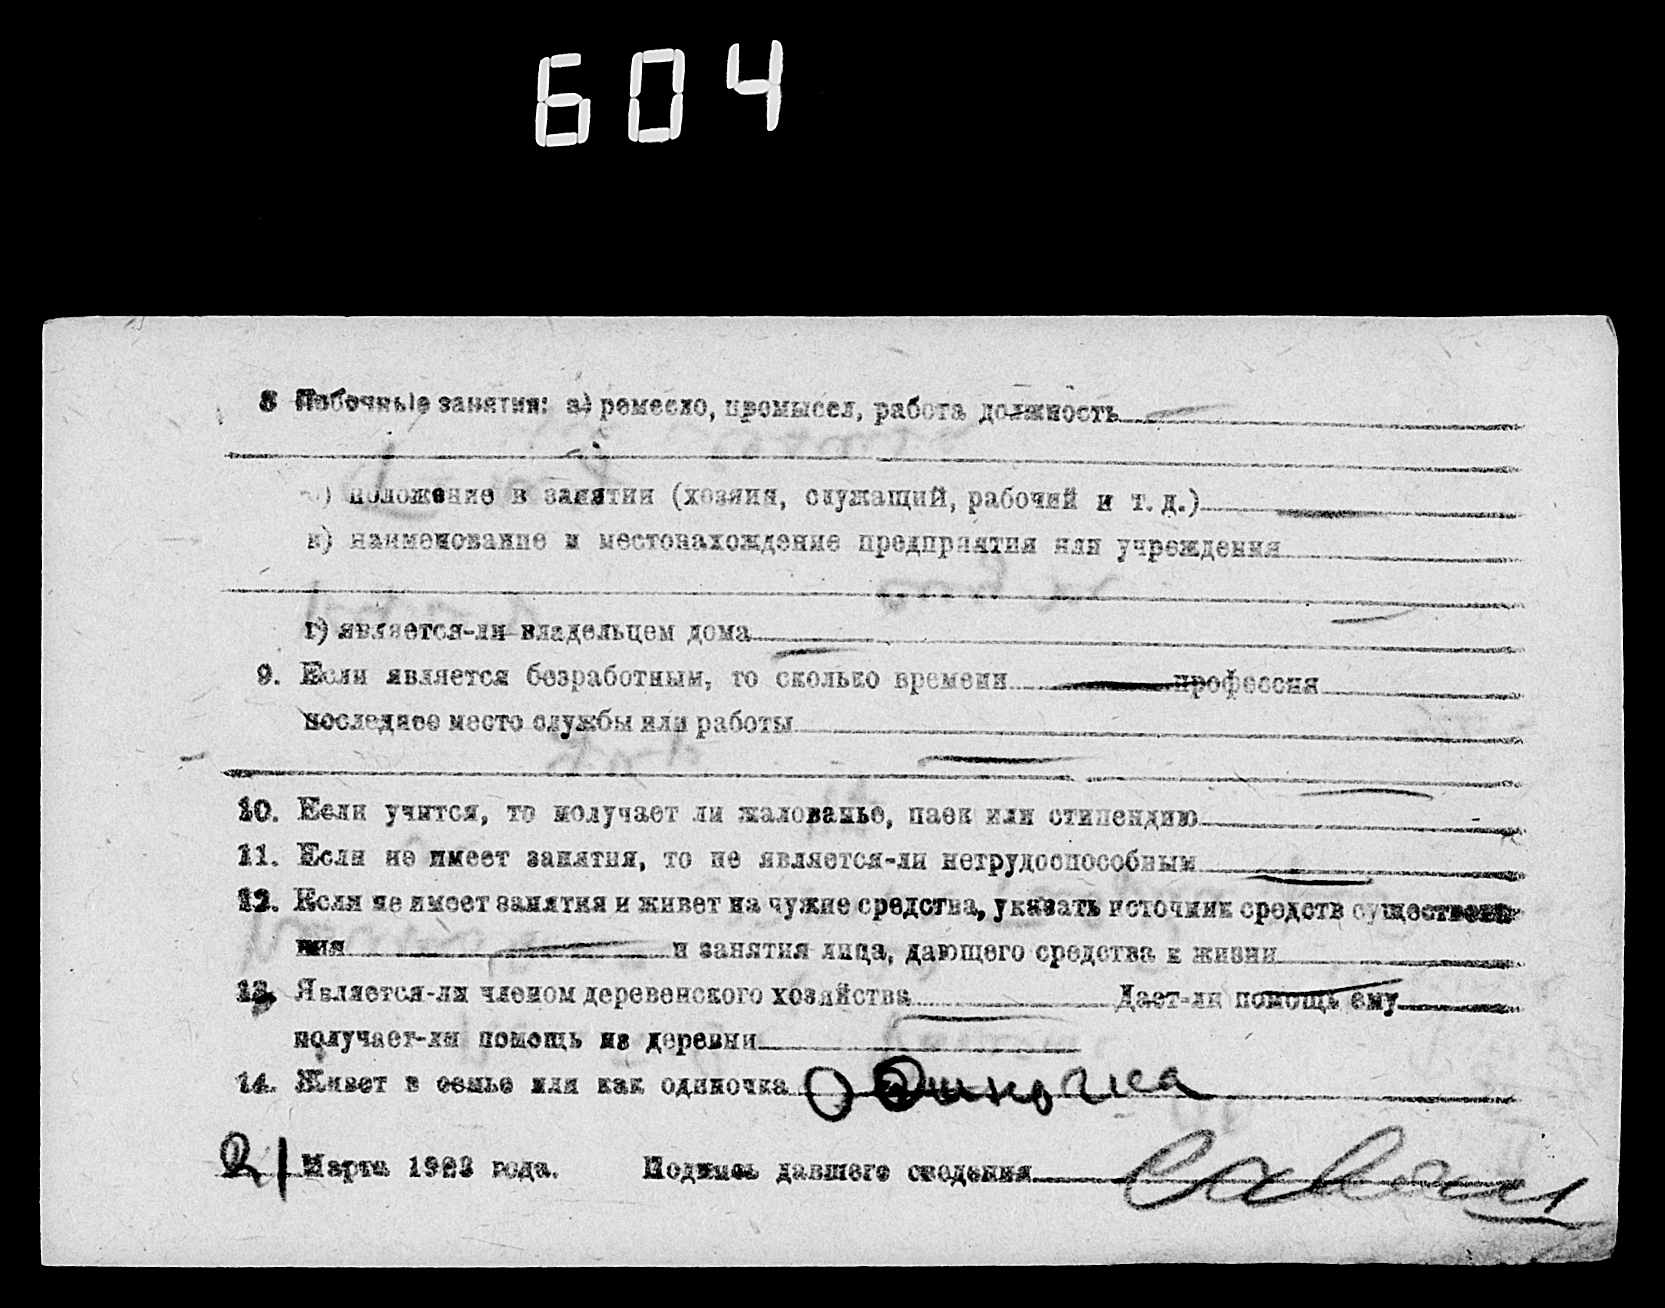 604
8 Побочные занятия: а) ремесло, промысел, работа должность
б) положение в занятии (хозяин, служащий, рабочий и т. д.)
в) наименование и местонахождение предприятия или учреждения
г) является-ли владельцем дома
9. Если является безработным, то сколько времени профессия
последнее место службы или работы
10. Если учится, то получает ли жалованье, паек или стипендию
11. Если не имеет занятия, то не является-ли нетрудоспособным
12. Если не имеет занятия и живет на чужие средства, указать источник средств существова
ния и занятия лица, дающего средства к жизни
13. Является-ли членом деревенского хозяйства Дает-ли помощь ему
получает-ли помощь из деревни
14. Живет в семье или как одиночка одиночка
21 Марта 1923 года. Подпись давшего сведения